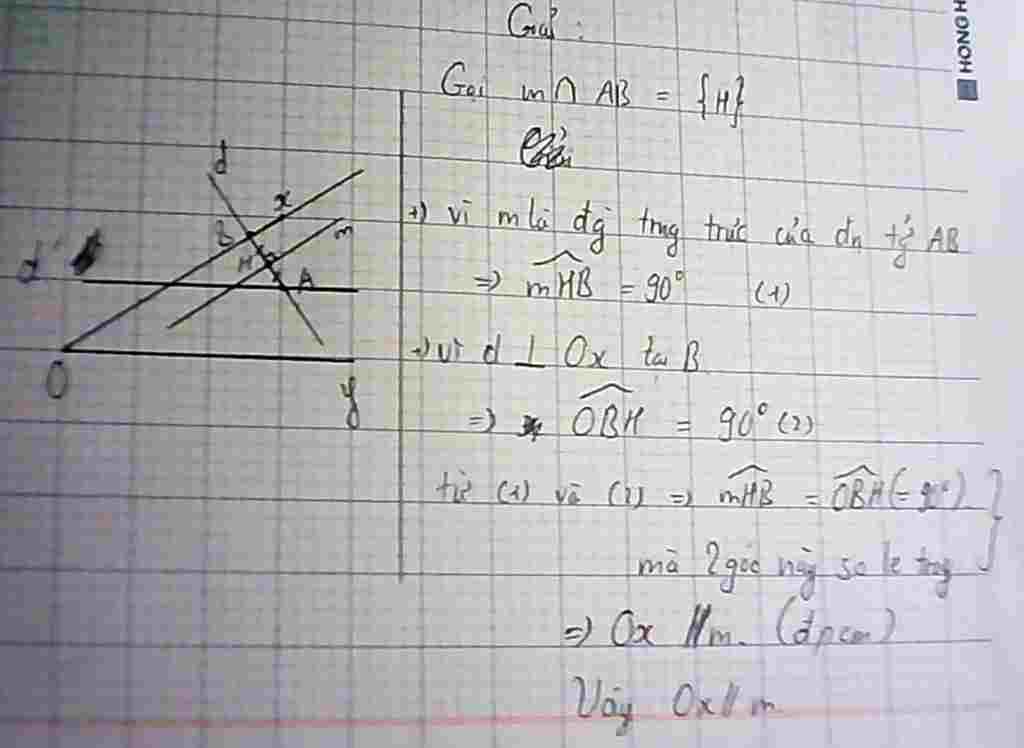 Giải :
Gọi m ∩ AB = {H}
+) vì m là đg trug trực của đn tg AB
=> mHB = 90° (1)
+) vì d ⊥ Ox tại B
=> OBH = 90° (2)
từ (1) và (2) => mHB = OBH (= 90°)
mà 2 góc này so le trog
=> Ox // m. (đpcm)
Vậy Ox // m
d
x
B
m
H
d'
A
O
y
HONG H